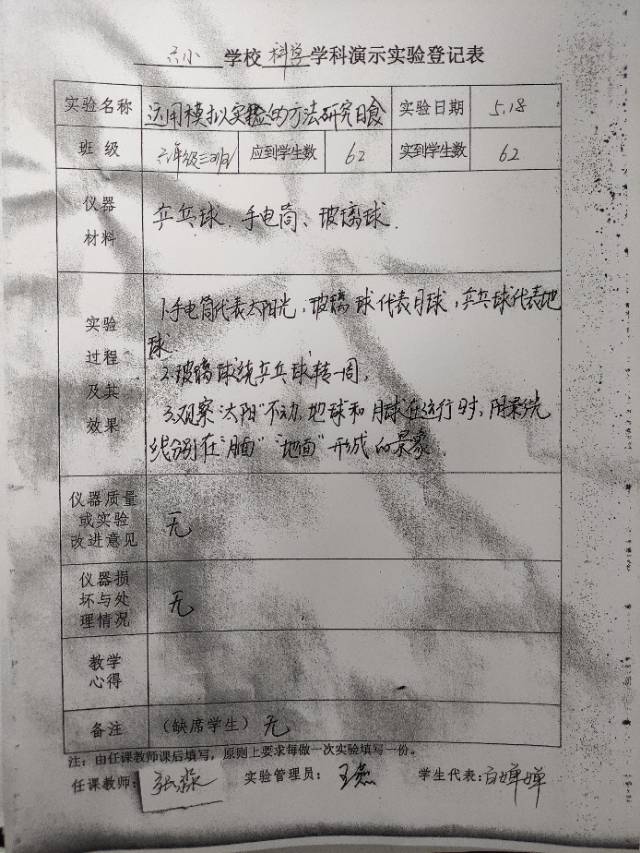 六小 学校 科学 学科演示实验登记表
实验名称 运用模拟实验的方法研究日食 实验日期 5.18
班 级 六年级三班 应到学生数 62 实到学生数 62
仪器
材料
乒乓球、手电筒、玻璃球.
实验
过程
及其
效果
1.手电筒代表太阳光,玻璃球代表月球,乒乓球代表地
球
2.玻璃球绕乒乓球转一周,
3.观察"太阳"不动,地球和月球在运行时,阴影光
线分别在"月面" "地面"形成的景象.
仪器质量
或实验
改进意见
无
仪器损
坏与处
理情况
无
教学
心得
备注 (缺席学生) 无
注:由任课教师课后填写,原则上要求每做一次实验填写一份。
任课教师: 张淼 实验管理员: 王 学生代表: 白婵婵